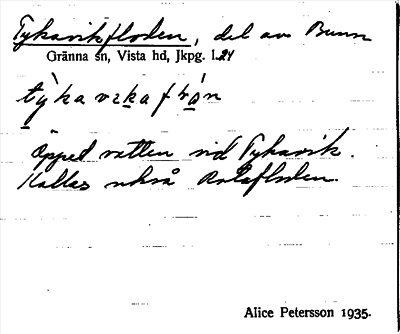 Tykavikfloden, del av Bunn
Gränna sn, Vista hd, Jkpg. l. 24
Öppet vatten vid Tykavik.
Kallas också
Alice Petersson 1935.